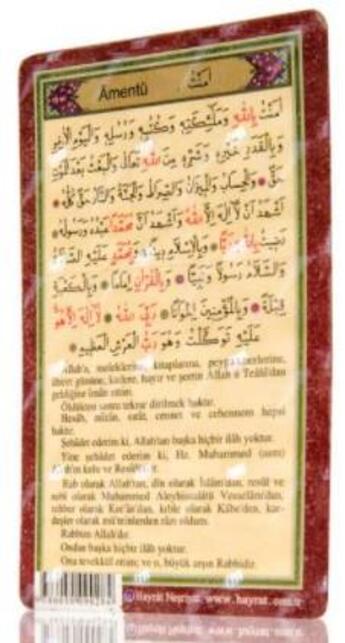 Âmentü
اٰمَنْتُ
اٰمَنْتُ بِاللّٰهِ وَمَلٰٓئِكَتِهِ وَكُتُبِهِ وَرُسُلِهِ وَالْيَوْمِ الْاٰخِرِ
وَبِالْقَدَرِ خَيْرِهِ وَشَرِّهِ مِنَ اللّٰهِ تَعَالٰى وَالْبَعْثُ بَعْدَ الْمَوْتِ
حَقٌّ وَالْحِسَابُ وَالْمِيزَانُ وَالصِّرَاطُ وَالْجَنَّةُ وَالنَّارُ حَقٌّ كُلُّهُ
اَشْهَدُ اَنْ لَٓا اِلٰهَ اِلَّا اللّٰهُ وَاَشْهَدُ اَنَّ مُحَمَّدًا عَبْدُهُ وَرَسُولُهُ
رَضِيتُ بِاللّٰهِ رَبًّا وَبِالْاِسْلَامِ دِينًا وَبِمُحَمَّدٍ عَلَيْهِ الصَّلَاةُ
وَالسَّلَامُ رَسُولًا وَنَبِيًّا وَبِالْقُرْاٰنِ اِمَامًا وَبِالْكَعْبَةِ
قِبْلَةً وَبِالْمُؤْمِنِينَ اِخْوَانًا رَبِّيَ اللّٰهُ لَٓا اِلٰهَ اِلَّا هُوَ
عَلَيْهِ تَوَكَّلْتُ وَهُوَ رَبُّ الْعَرْشِ الْعَظِيمِ
Allah'a, meleklerine, kitaplarına, peygamberlerine,
âhiret gününe, kadere, hayır ve şerrin Allah-ü Teâlâ'dan
geldiğine îmân ettim.
Öldükten sonra tekrar dirilmek haktır.
Hesâb, mîzân, sırât, cennet ve cehennem hepsi
haktır.
Şehâdet ederim ki, Allah'tan başka hiçbir ilâh yoktur.
Yine şehâdet ederim ki, Hz. Muhammed (asm)
Allah'ın kulu ve Resûlüdür.
Rab olarak Allah'tan, dîn olarak İslâm'dan, resûl ve
nebî olarak Muhammed Aleyhissalâtü Vesselâm'dan,
rehber olarak Kur'ân'dan, kıble olarak Kâbe'den, kar-
deşler olarak mü'minlerden râzı oldum.
Rabbim Allah'dır.
Ondan başka hiçbir ilâh yoktur.
Ona tevekkül ettim; ve o, büyük arşın Rabbidir.
Hayrât Neşriyat www.hayrat.com.tr